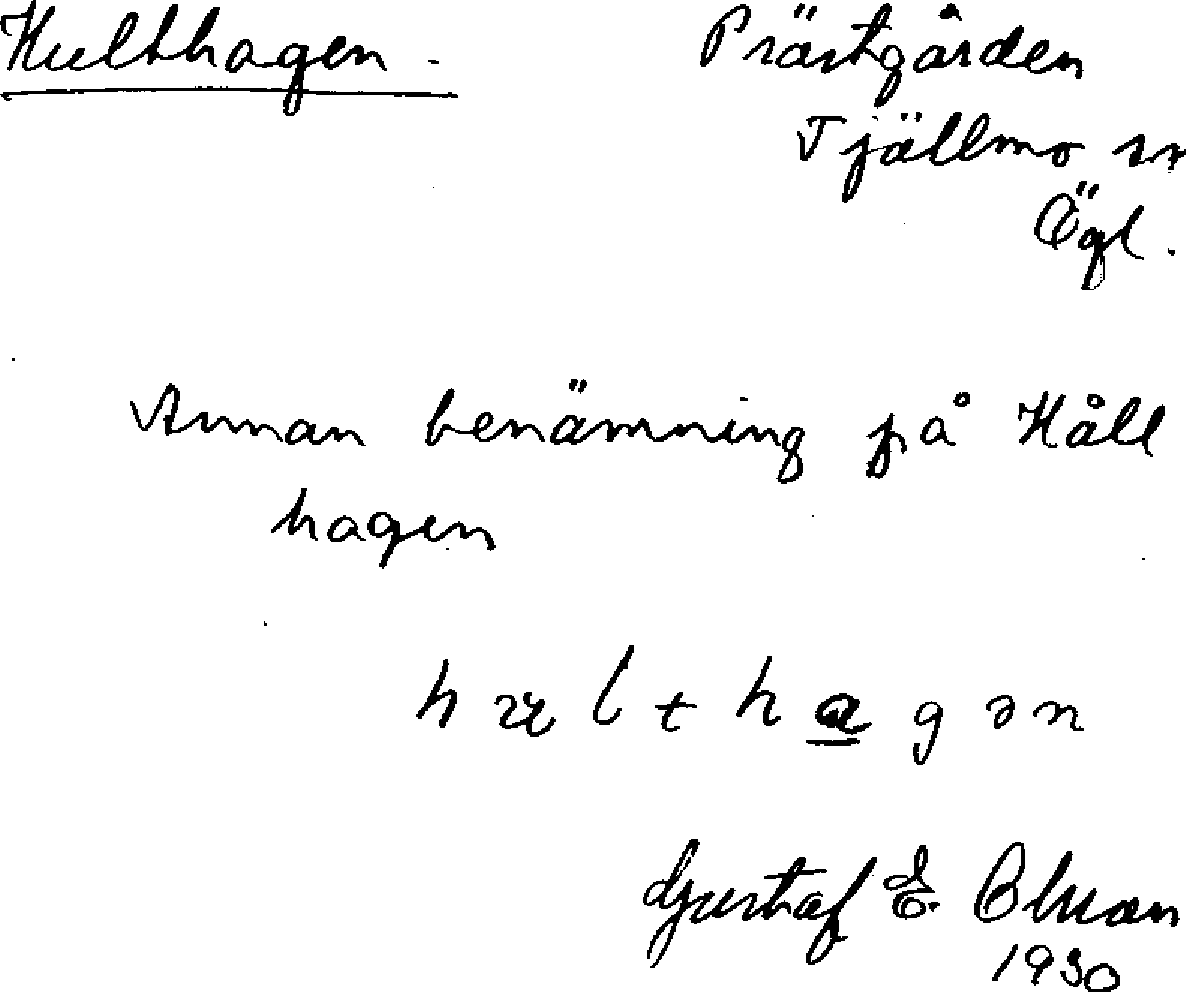 Hulthagen.
Prästgården
Tjällmo sn
Ögl.
Annan benämning på Håll
hagen
Gustaf E.
1930